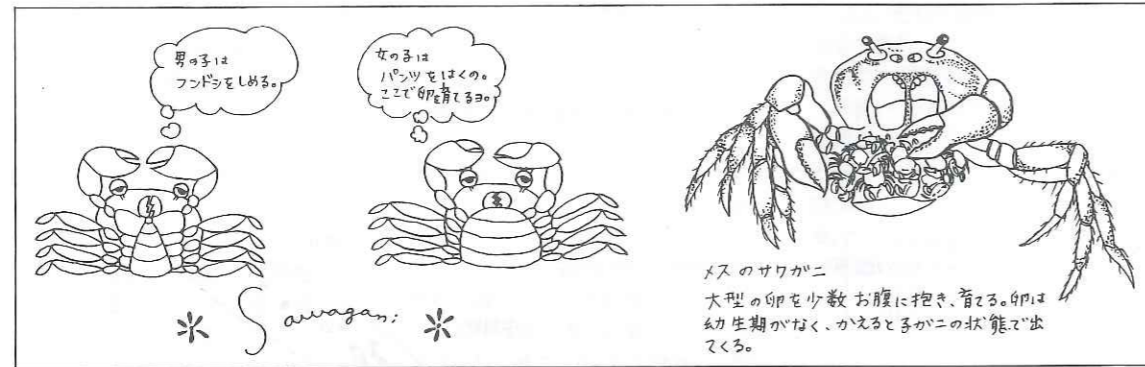 男の子は
フンドシをしめる。
女の子は
パンツをはくの。
ここで卵を育てるヨ。
Sawagani
メスのサワガニ
大型の卵を少数お腹に抱き、育てる。卵は
幼生期がなく、かえると子ガニの状態で出
てくる。